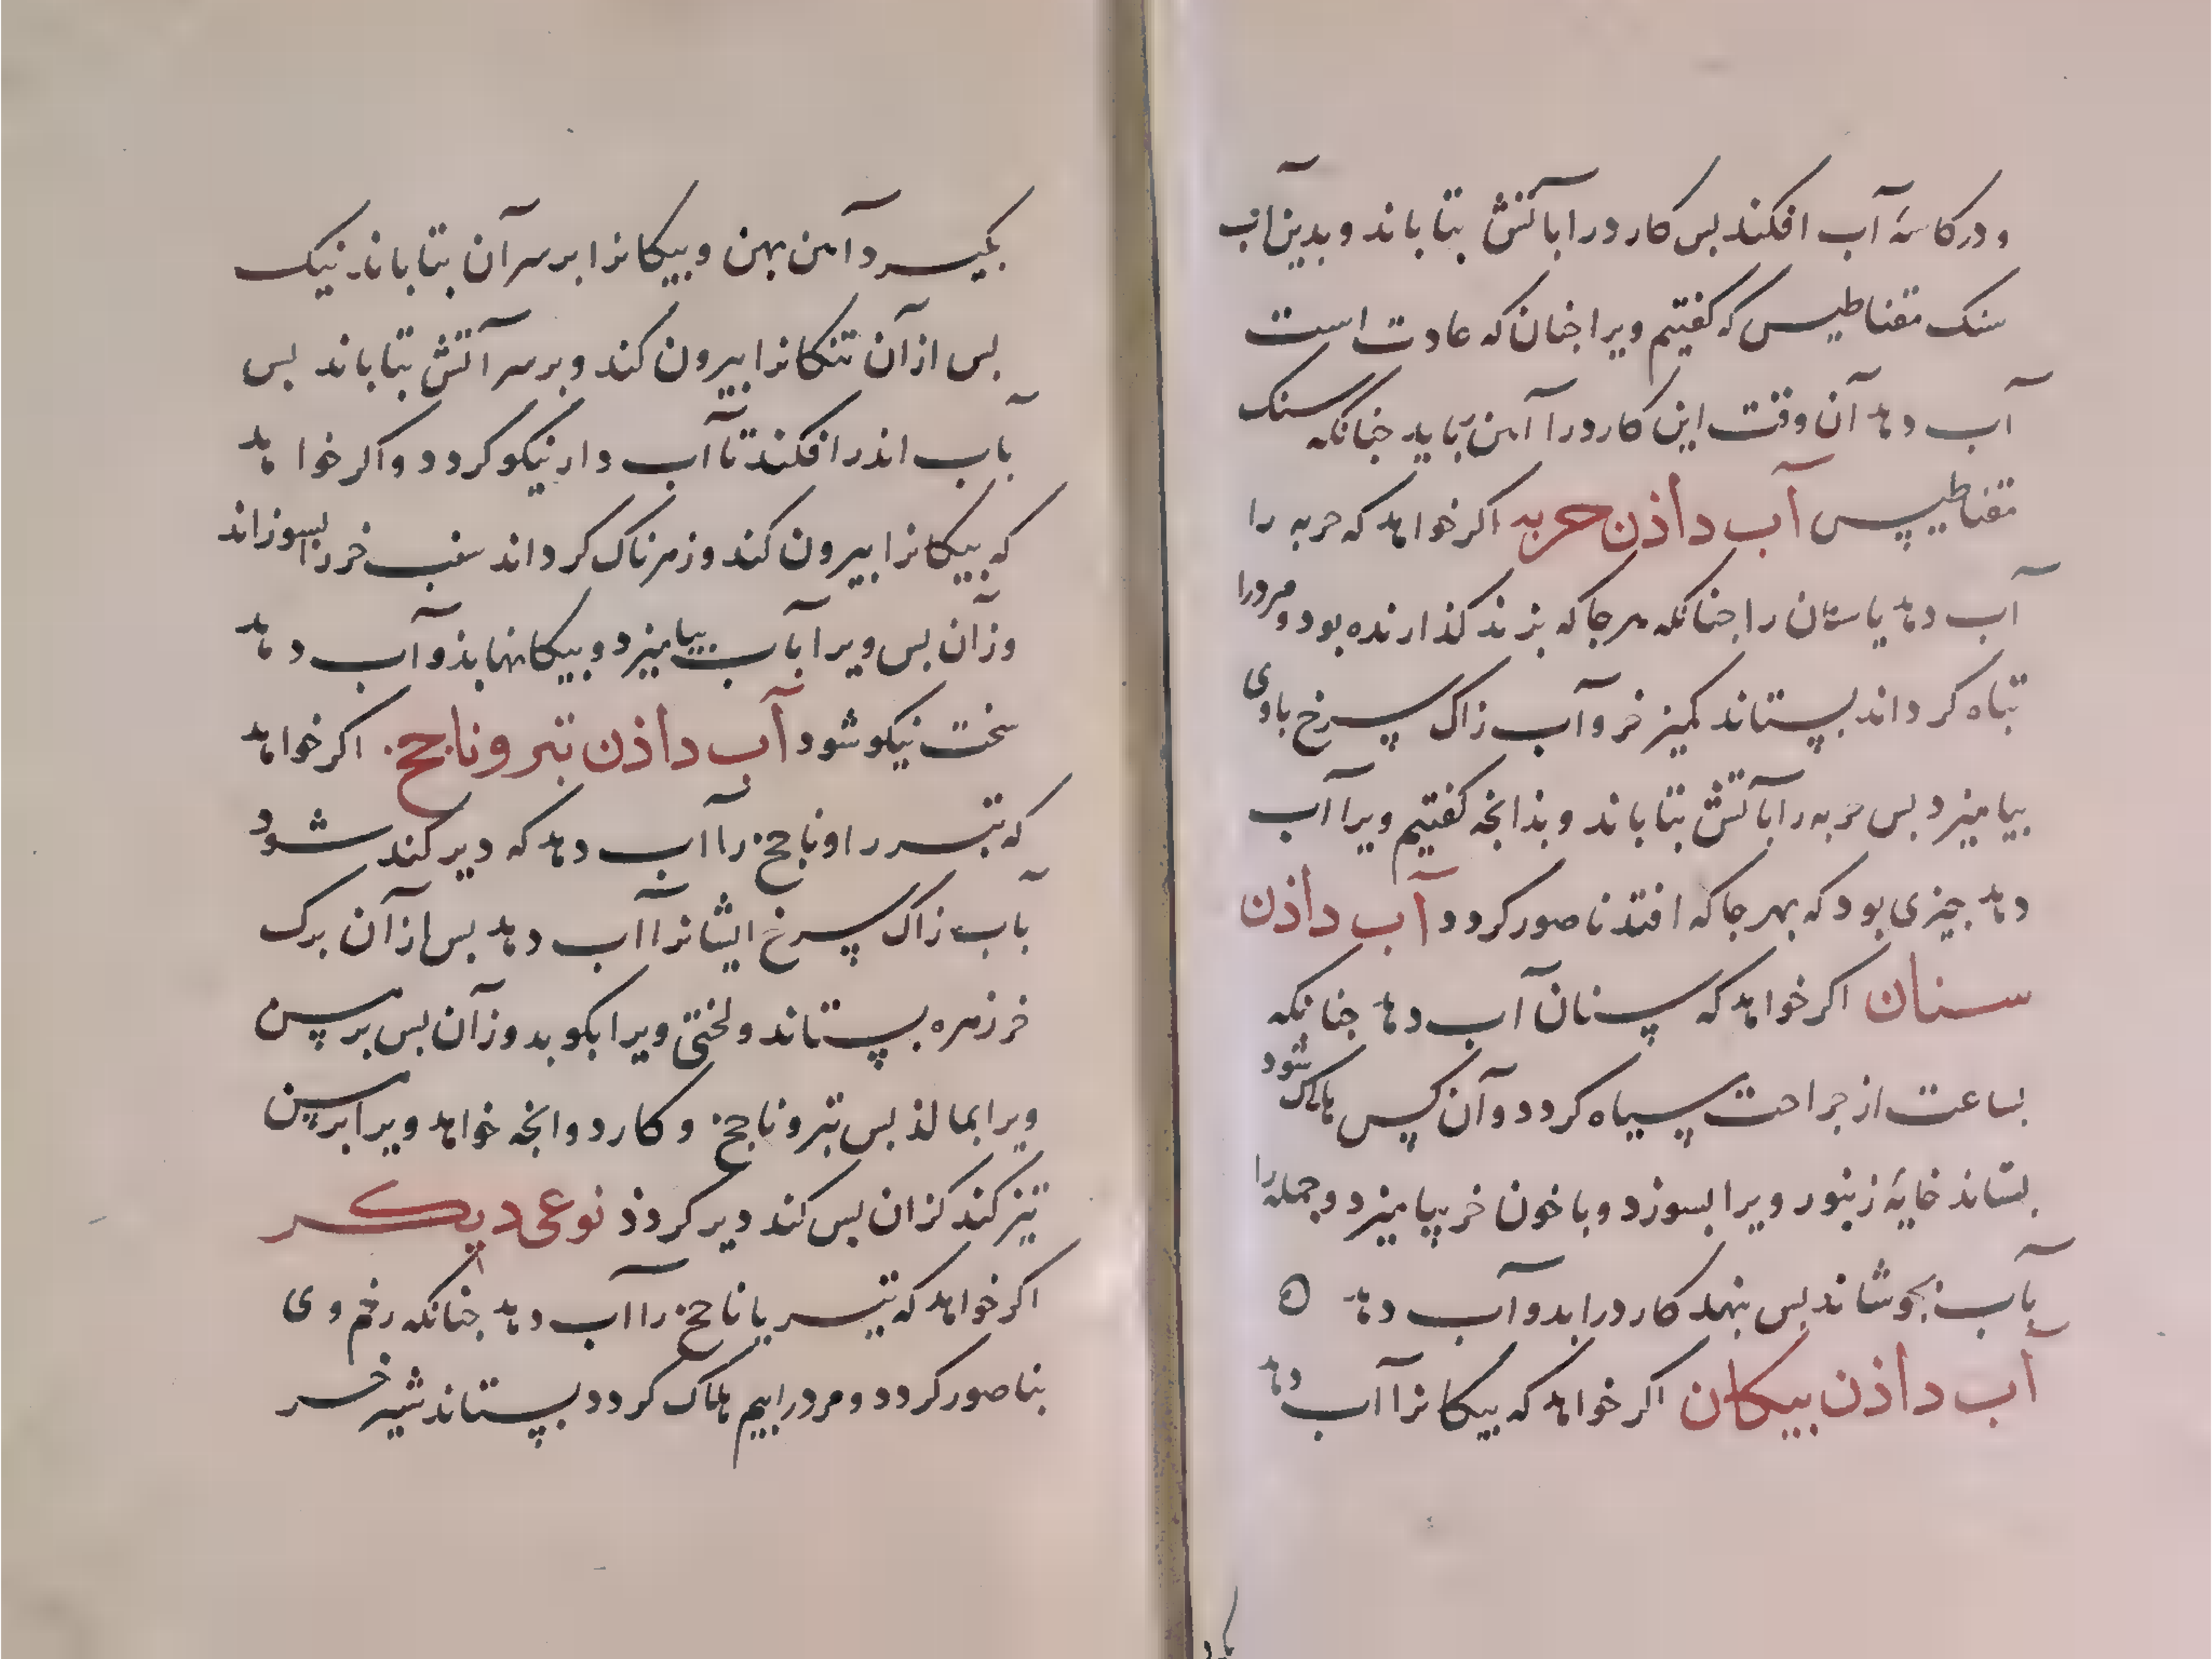 و در کاسهٔ آب افکند بس کارد را بآتش بتاباند و بدین آب
سنک مقناطیس که کفتیم ویرا جنان که عادت است
آب دهد آن وقت این کارد را آهن رباید جنانکه سنک
مقناطیس آب داذن حربه اکر خواهد که حربه را
آب دهد یا سنان را جنانکه هر جا که بزند کذارنده بود و مرد را
تباه کرداند بستاند کمیز خر و آب زاک سرخ با وی
بیامیزد بس حربه را بآتش بتاباند و بذانجه کفتیم ویرا آب
دهد جیزی بود که بهر جا که افتد ناصور کردد آب داذن
سنان اکر خواهد که سنان آب دهد جنانکه
بساعت از جراحت سیاه کردد و آن کس هلاک شود
بستاند خایهٔ زنبور ویرا بسوزد و با خون خر بیامیزد و جمله را
بآب بجوشاند بس بنهد کارد را بدو آب دهد
آب داذن بیکان اکر خواهد که بیکانرا آب دهد
بکیرد آهن بهن و بیکانرا بر سر آن بتاباند نیک
بس از آن تنکانرا بیرون کند و بر سر آتش بتاباند بس
بآب اندر افکند تا آب دار نیکو کردد و اکر خواهد
که بیکانرا بیرون کند و زهرناک کرداند سنب خر را بسوزاند
وز آن بس ویرا بآب بیامیزد و بیکانها بذو آب دهد
سخت نیکو شود آب داذن تبر و ناجخ اکر خواهد
که تبر را و ناجخ را آب دهد که دیر کند شود
بآب زاک سرخ ایشانرا آب دهد بس از آن برک
خرزهره بستاند و لختی ویرا بکوبد وز آن بس بر سن
ویرا بمالذ بس تبر و ناجخ و کارد و انجه خواهد ویرا بر سن
تیز کند کزان بس کند دیر کردذ نوعی دیکر
اکر خواهد که تبر یا ناجخ را آب دهد جنانکه زخم وی
بناصور کردد و مرد را بیم هلاک کردد بستاند شیر خر